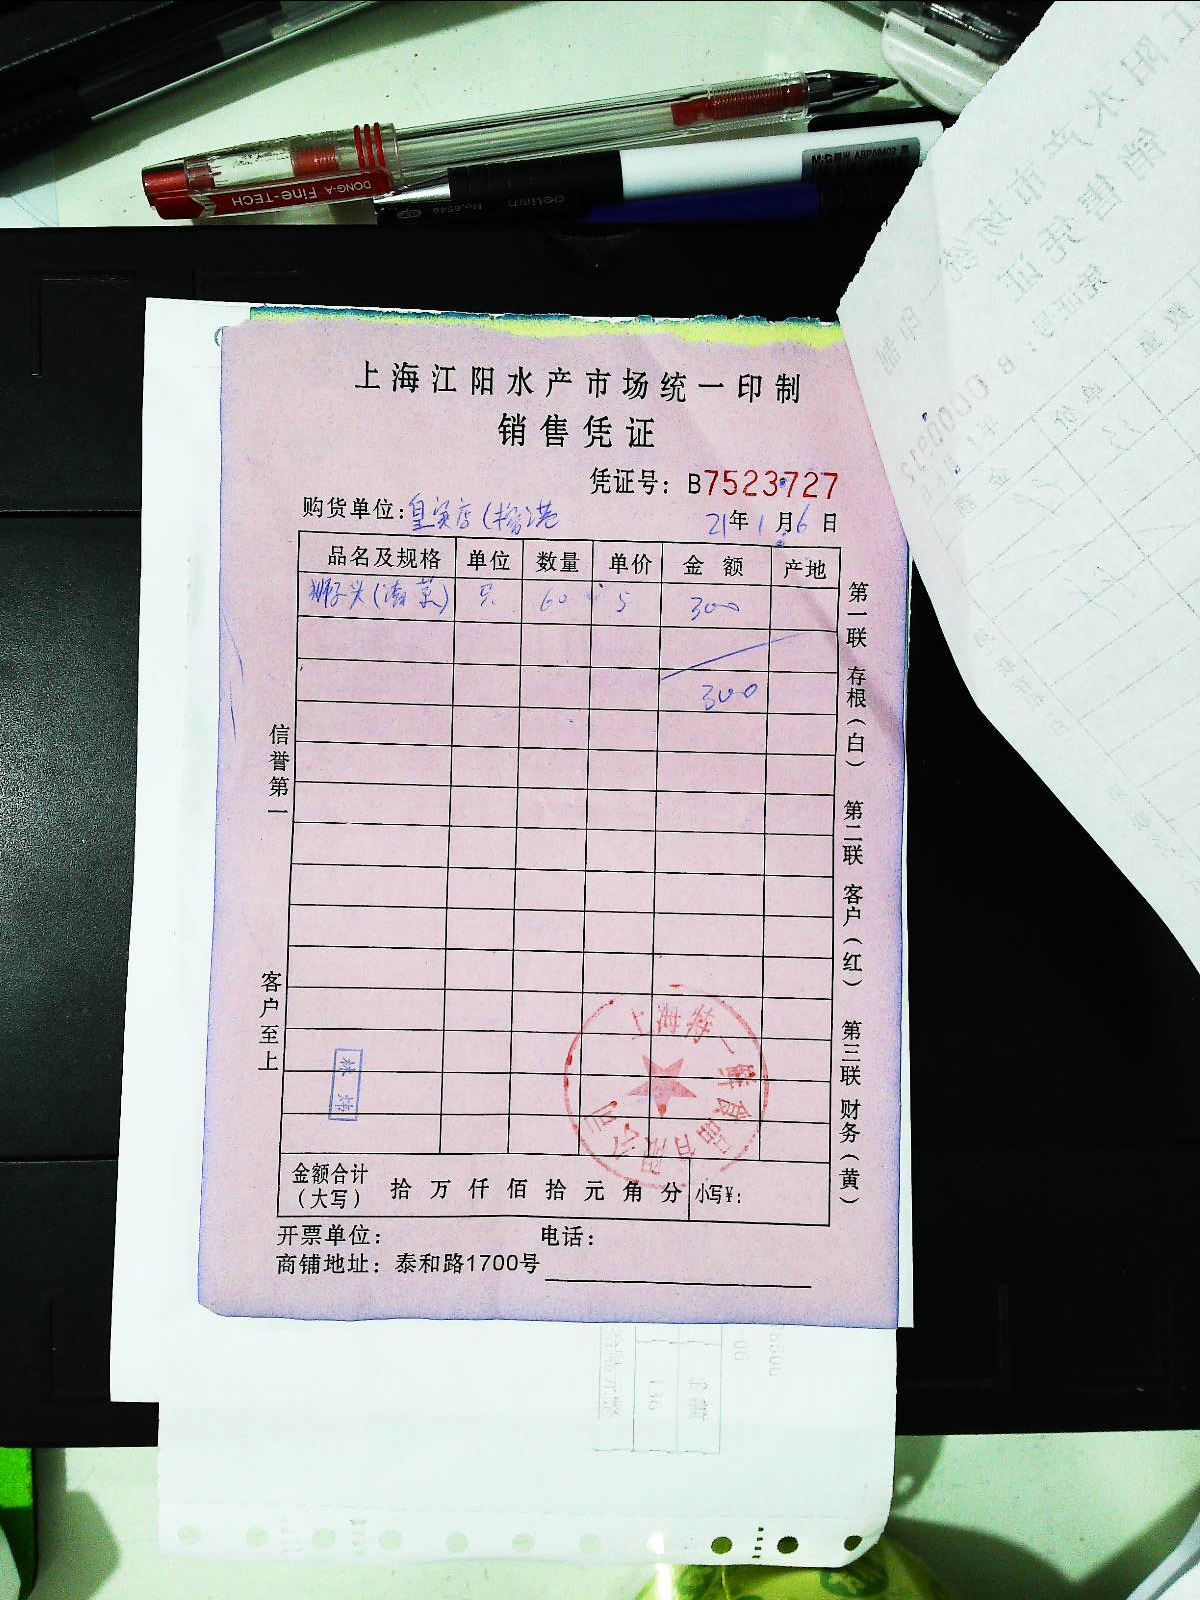 DONG-A Fine-TECH
deli No.6546
M&G晨光 ABP88402
上海江阳水产市场统一印制
销售凭证
凭证号：B7523727
购货单位：
21年1月6日
品名及规格 单位 数量 单价 金额 产地
狮子头(清蒸) 只 60 5 300
300
信誉第一
客户至上
第一联 存根（白） 第二联 客户（红） 第三联 财务（黄）
上海特一鲜食品有限公司
金额合计（大写） 拾万仟佰拾元角分 小写¥：
开票单位： 电话：
商铺地址：泰和路1700号
江阳水产市场统一印制
销售凭证
凭证号：B